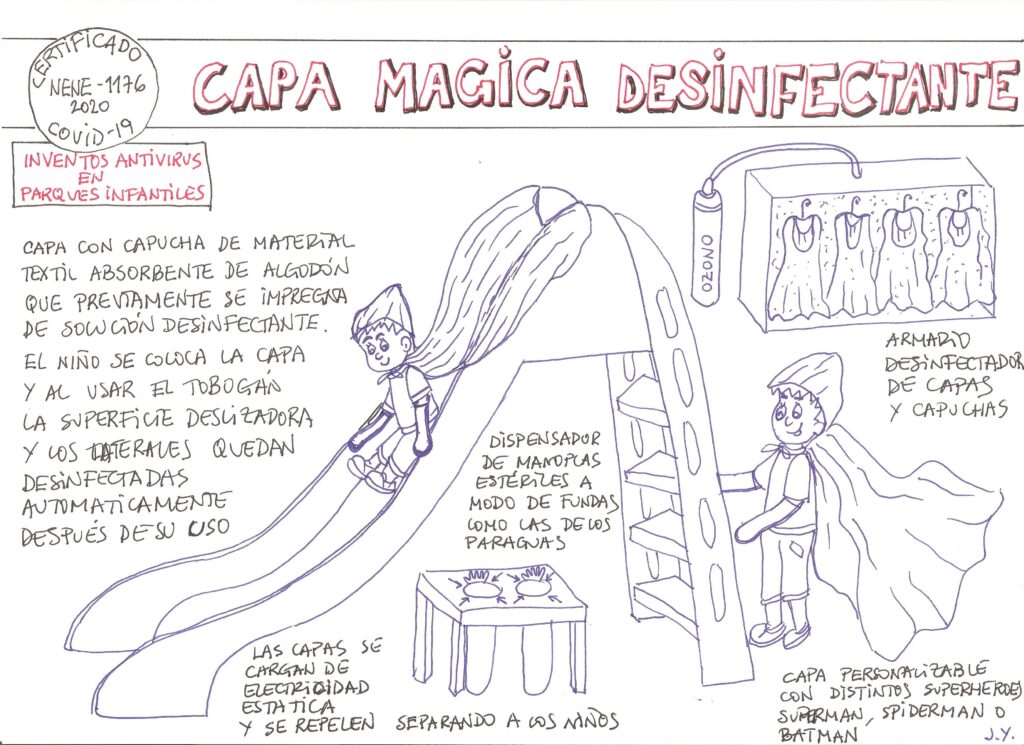 CERTIFICADO
NENE-1176
2020
COVID-19
CAPA MAGICA DESINFECTANTE
INVENTOS ANTIVIRUS
EN
PARQUES INFANTILES
CAPA CON CAPUCHA DE MATERIAL
TEXTIL ABSORBENTE DE ALGODÓN
QUE PREVIAMENTE SE IMPREGNA
DE SOLUCIÓN DESINFECTANTE.
EL NIÑO SE COLOCA LA CAPA
Y AL USAR EL TOBOGÁN
LA SUPERFICIE DESLIZADORA
Y LOS LATERALES QUEDAN
DESINFECTADAS
AUTOMATICAMENTE
DESPUÉS DE SU USO
OZONO
ARMARIO
DESINFECTADOR
DE CAPAS
Y CAPUCHAS
DISPENSADOR
DE MANOPLAS
ESTÉRILES A
MODO DE FUNDAS
COMO LAS DE LOS
PARAGUAS
LAS CAPAS SE
CARGAN DE
ELECTRICIDAD
ESTATICA
Y SE REPELEN SEPARANDO A LOS NIÑOS
CAPA PERSONALIZABLE
CON DISTINTOS SUPERHEROES
SUPERMAN, SPIDERMAN O
BATMAN
J.Y.